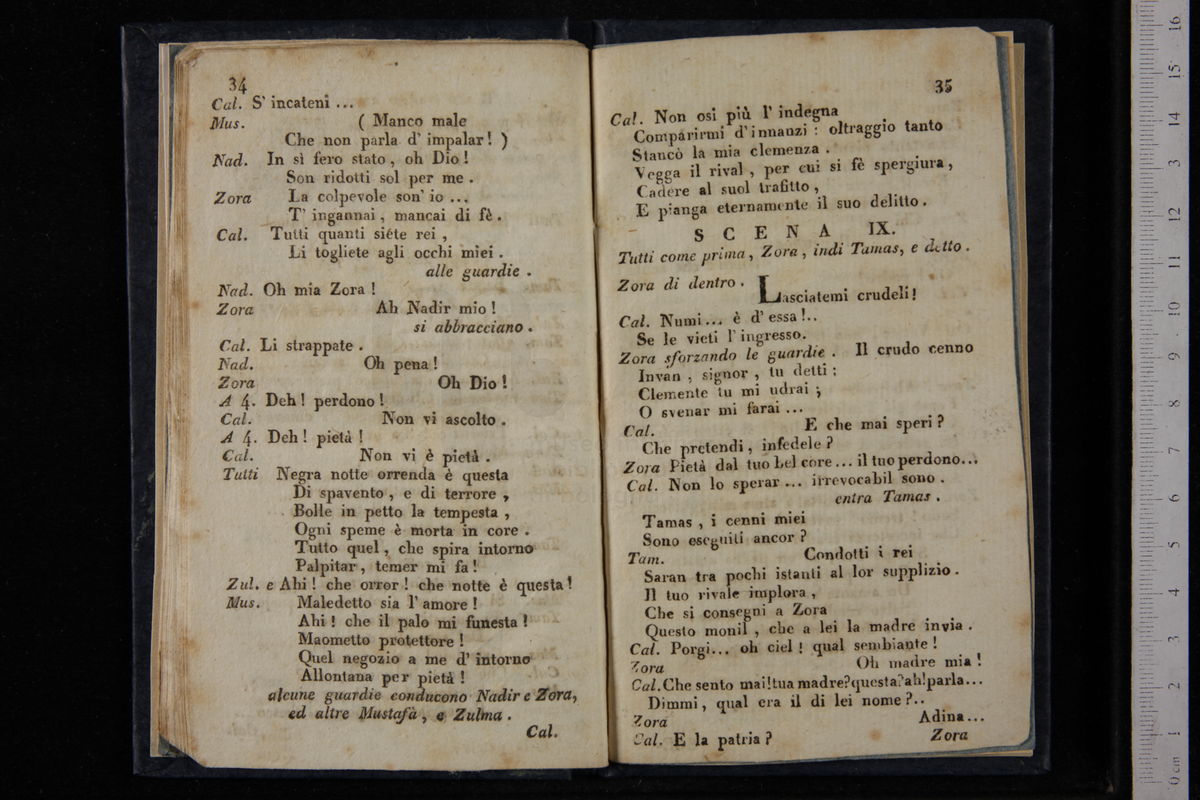 34
Cal. S' incateni ...
Mus. ( Manco male
Che non parla d' impalar! )
Nad. In sì fero stato, oh Dio!
Son ridotti sol per me.
Zora La colpevole son' io ...
T' ingannai, mancai di fè.
Cal. Tutti quanti siéte rei,
Li togliete agli occhi miei.
alle guardie.
Nad. Oh mia Zora!
Zora Ah Nadir mio!
si abbracciano.
Cal. Li strappate.
Nad. Oh pena!
Zora Oh Dio!
A 4. Deh! perdono!
Cal. Non vi ascolto.
A 4. Deh! pietà!
Cal. Non vi è pietà.
Tutti Negra notte orrenda è questa
Di spavento, e di terrore,
Bolle in petto la tempesta,
Ogni speme è morta in core.
Tutto quel, che spira intorno
Palpitar, temer mi fa!
Zul. e Ahi! che orror! che notte è questa!
Mus. Maledetto sia l' amore!
Ahi! che il palo mi funesta!
Maometto protettore!
Quel negozio a me d' intorno
Allontana per pietà!
alcune guardie conducono Nadir e Zora,
ed altre Mustafà, e Zulma.
Cal.
35
Cal. Non osi più l' indegna
Comparirmi d' innanzi: oltraggio tanto
Stancò la mia clemenza.
Vegga il rival, per cui si fè spergiura,
Cadere al suol trafitto,
E pianga eternamente il suo delitto.
SCENA IX.
Tutti come prima, Zora, indi Tamas, e detto.
Zora di dentro. Lasciatemi crudeli!
Cal. Numi... è d' essa!..
Se le vieti l' ingresso.
Zora sforzando le guardie. Il crudo cenno
Invan, signor, tu detti:
Clemente tu mi udrai;
O svenar mi farai ...
Cal. E che mai speri?
Che pretendi, infedele?
Zora Pietà dal tuo bel core... il tuo perdono...
Cal. Non lo sperar ... irrevocabil sono.
entra Tamas.
Tamas, i cenni miei
Sono eseguiti ancor?
Tam. Condotti i rei
Saran tra pochi istanti al lor supplizio.
Il tuo rivale implora,
Che si consegni a Zora
Questo monil, che a lei la madre invia.
Cal. Porgi... oh ciel! qual sembiante!
Zora Oh madre mia!
Cal. Che sento mai! tua madre? questa? ah! parla...
Dimmi, qual era il di lei nome?..
Zora Adina...
Cal. E la patria?
Zora